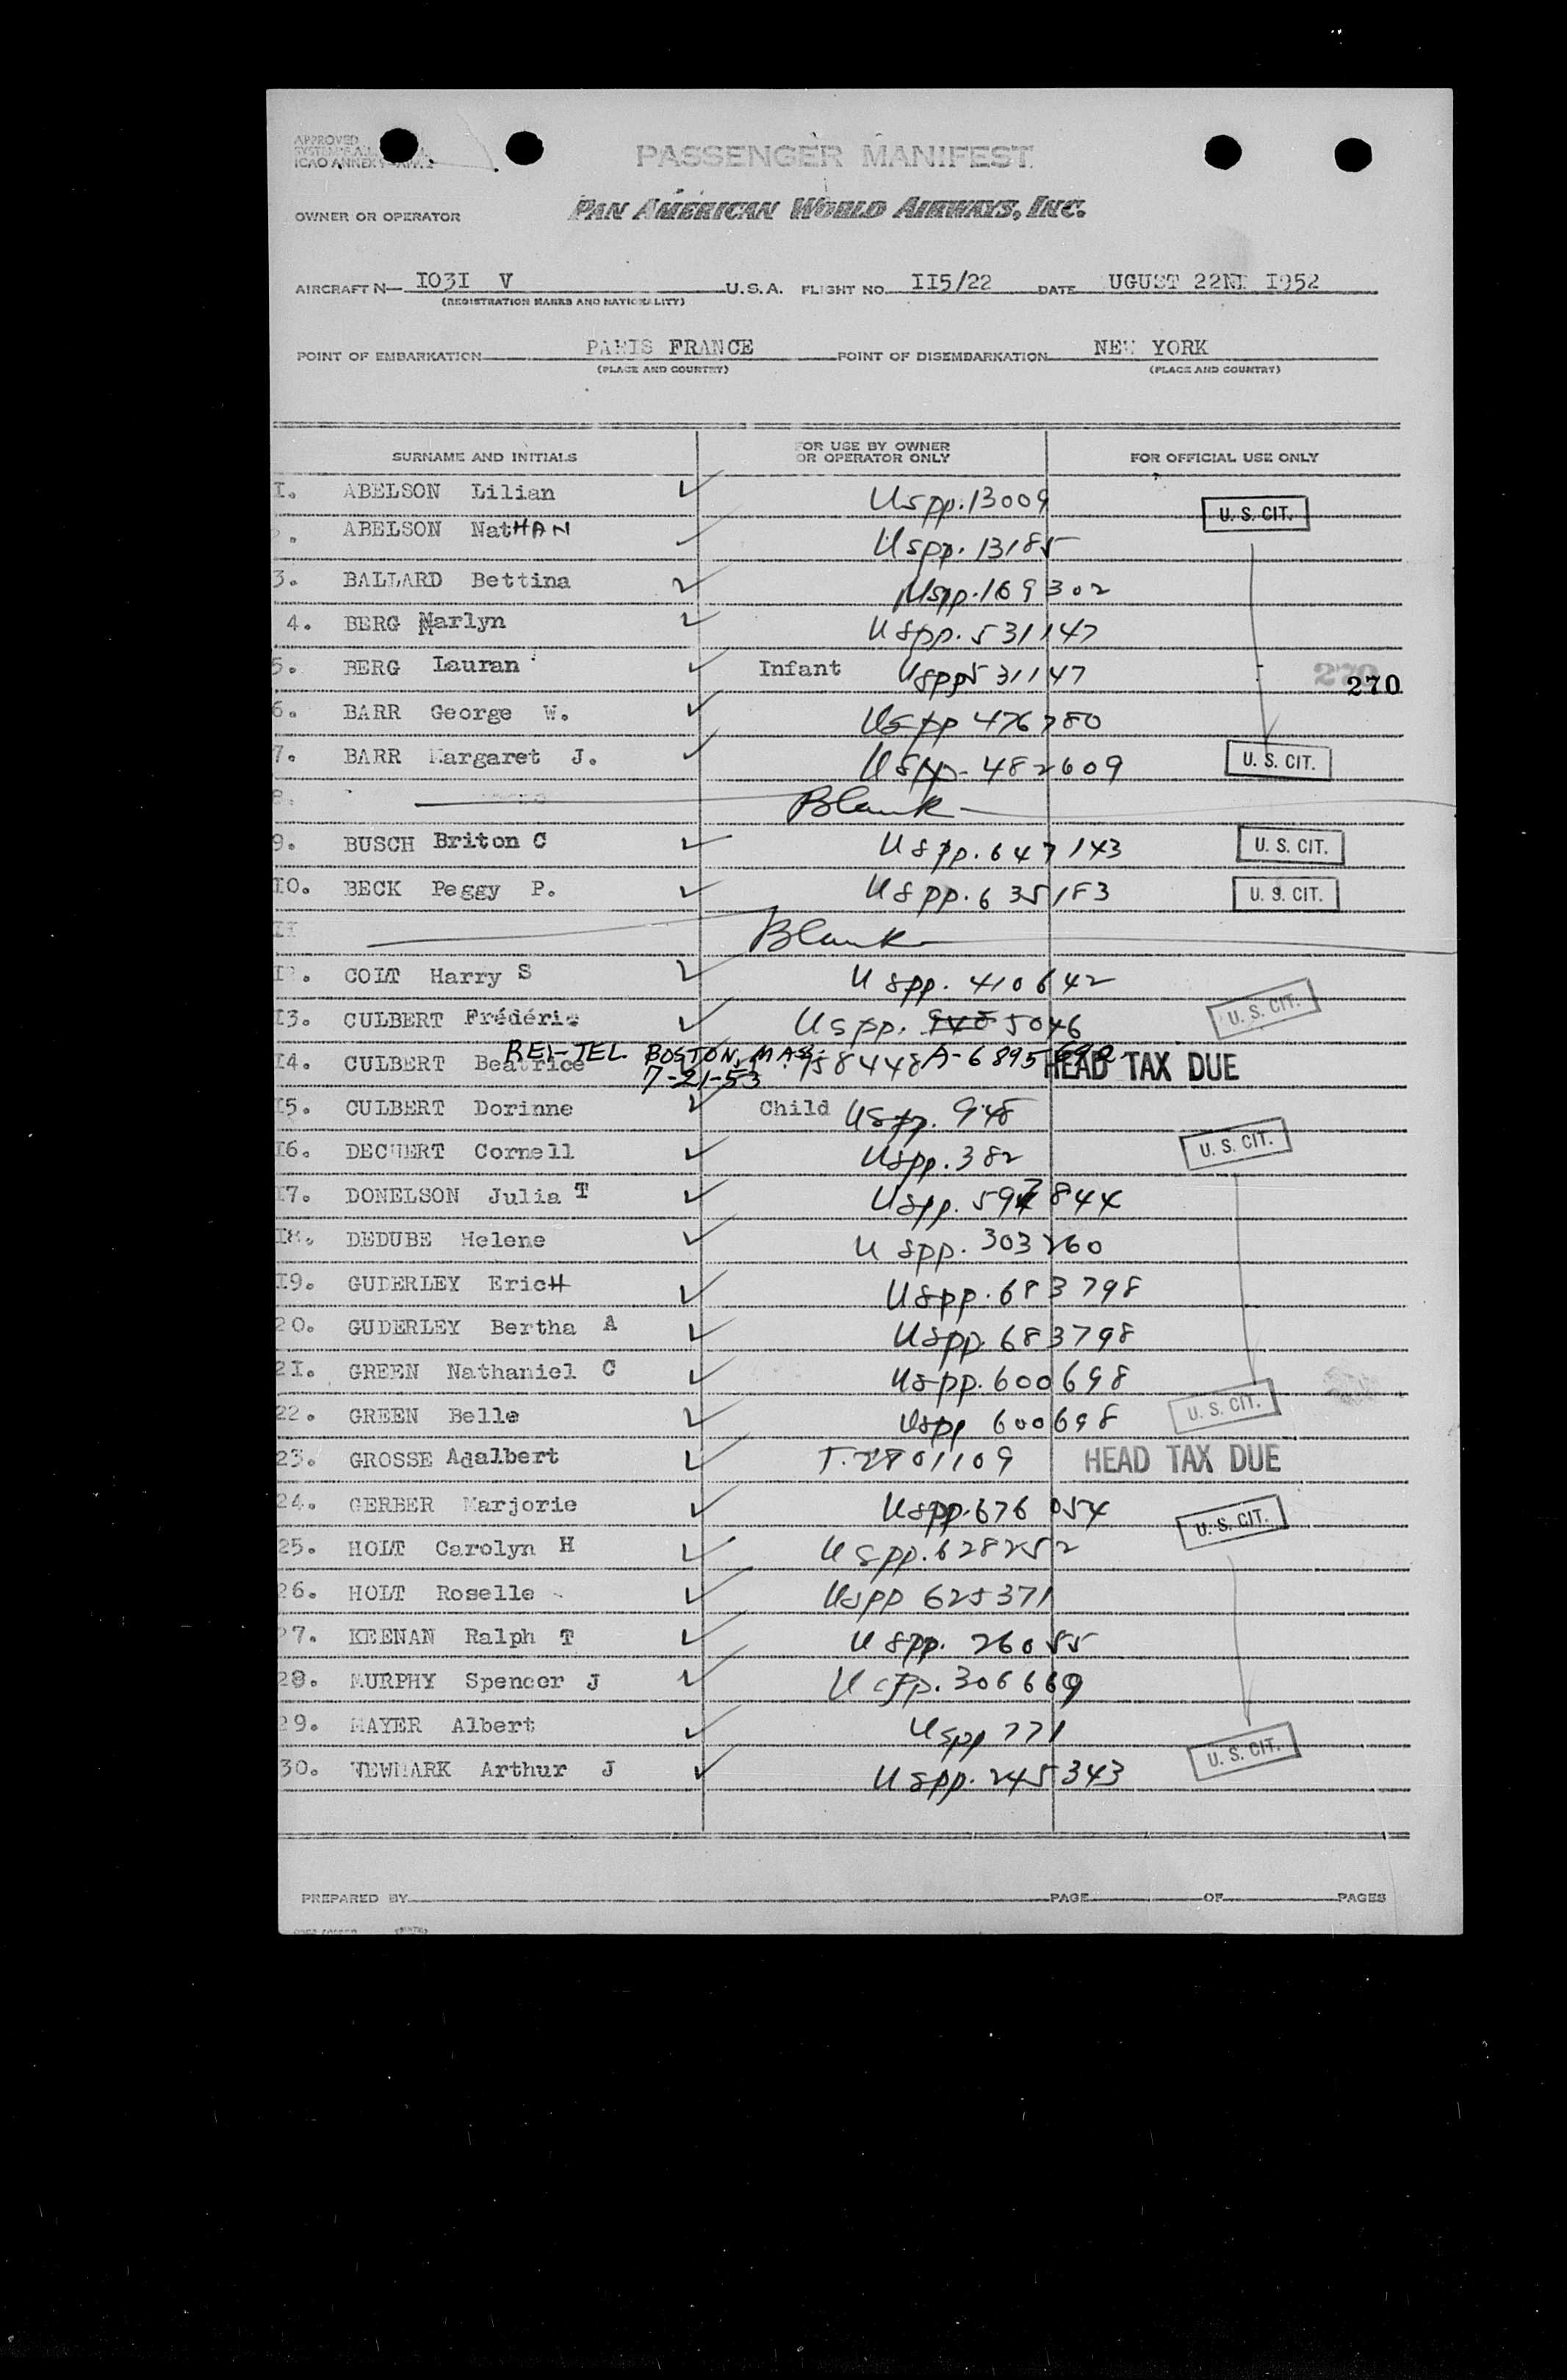 APPROVED
ICAO ANNEX
PASSENGER MANIFEST
OWNER OR OPERATOR PAN AMERICAN WORLD AIRWAYS, INC.
AIRCRAFT N— I03I V U.S.A. FLIGHT NO. II5/22 DATE UGUST 22ND I952
(REGISTRATION MARKS AND NATIONALITY)
POINT OF EMBARKATION PARIS FRANCE POINT OF DISEMBARKATION NEW YORK
(PLACE AND COUNTRY) (PLACE AND COUNTRY)
SURNAME AND INITIALS FOR USE BY OWNER OR OPERATOR ONLY FOR OFFICIAL USE ONLY
I. ABELSON Lilian Uspp. 13009 U. S. CIT.
. ABELSON NatHAN Uspp. 13185
3. BALLARD Bettina Uspp. 169302
4. BERG Marlyn Uspp. 531147
5. BERG Lauran Infant Uspp 531147 270 270
6. BARR George W. Uspp 476780
7. BARR Margaret J. Uspp. 482609 U. S. CIT.
8. Blank
9. BUSCH Briton C Uspp. 647143 U. S. CIT.
I0. BECK Peggy P. Uspp. 635183 U. S. CIT.
II Blank
I2. COLT Harry S Uspp. 410642 U. S. CIT.
I3. CULBERT Frédéric Uspp. 948 5046
REV-TEL. BOSTON, MASS.
I4. CULBERT Beatrice 7-21-53 958448 A-6895 HEAD TAX DUE
I5. CULBERT Dorinne Child Uspp. 948
I6. DECHERT Cornell Uspp. 382 U. S. CIT.
I7. DONELSON Julia T Uspp. 597844
I8. DEDUBE Helene Uspp. 303260
I9. GUDERLEY EricH Uspp. 683798
20. GUDERLEY Bertha A Uspp. 683798
2I. GREEN Nathaniel C Uspp. 600698
22. GREEN Belle Uspp 600698 U. S. CIT.
23. GROSSE Adalbert T. 2801109 HEAD TAX DUE
24. GERBER Marjorie Uspp. 676054 U. S. CIT.
25. HOLT Carolyn H Uspp. 628252
26. HOLT Roselle Uspp 625371
27. KEENAN Ralph T Uspp. 26055
28. MURPHY Spencer J Uspp. 306669
29. MAYER Albert Uspp 771
30. NEWMARK Arthur J Uspp. 245343 U. S. CIT.
PREPARED BY PAGE OF PAGES